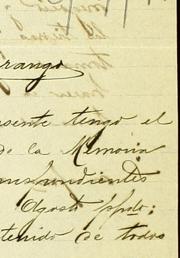 rango
esente tengo el
de la Memoria
ens pondientes
Agosto ppdo;
tenido de todos